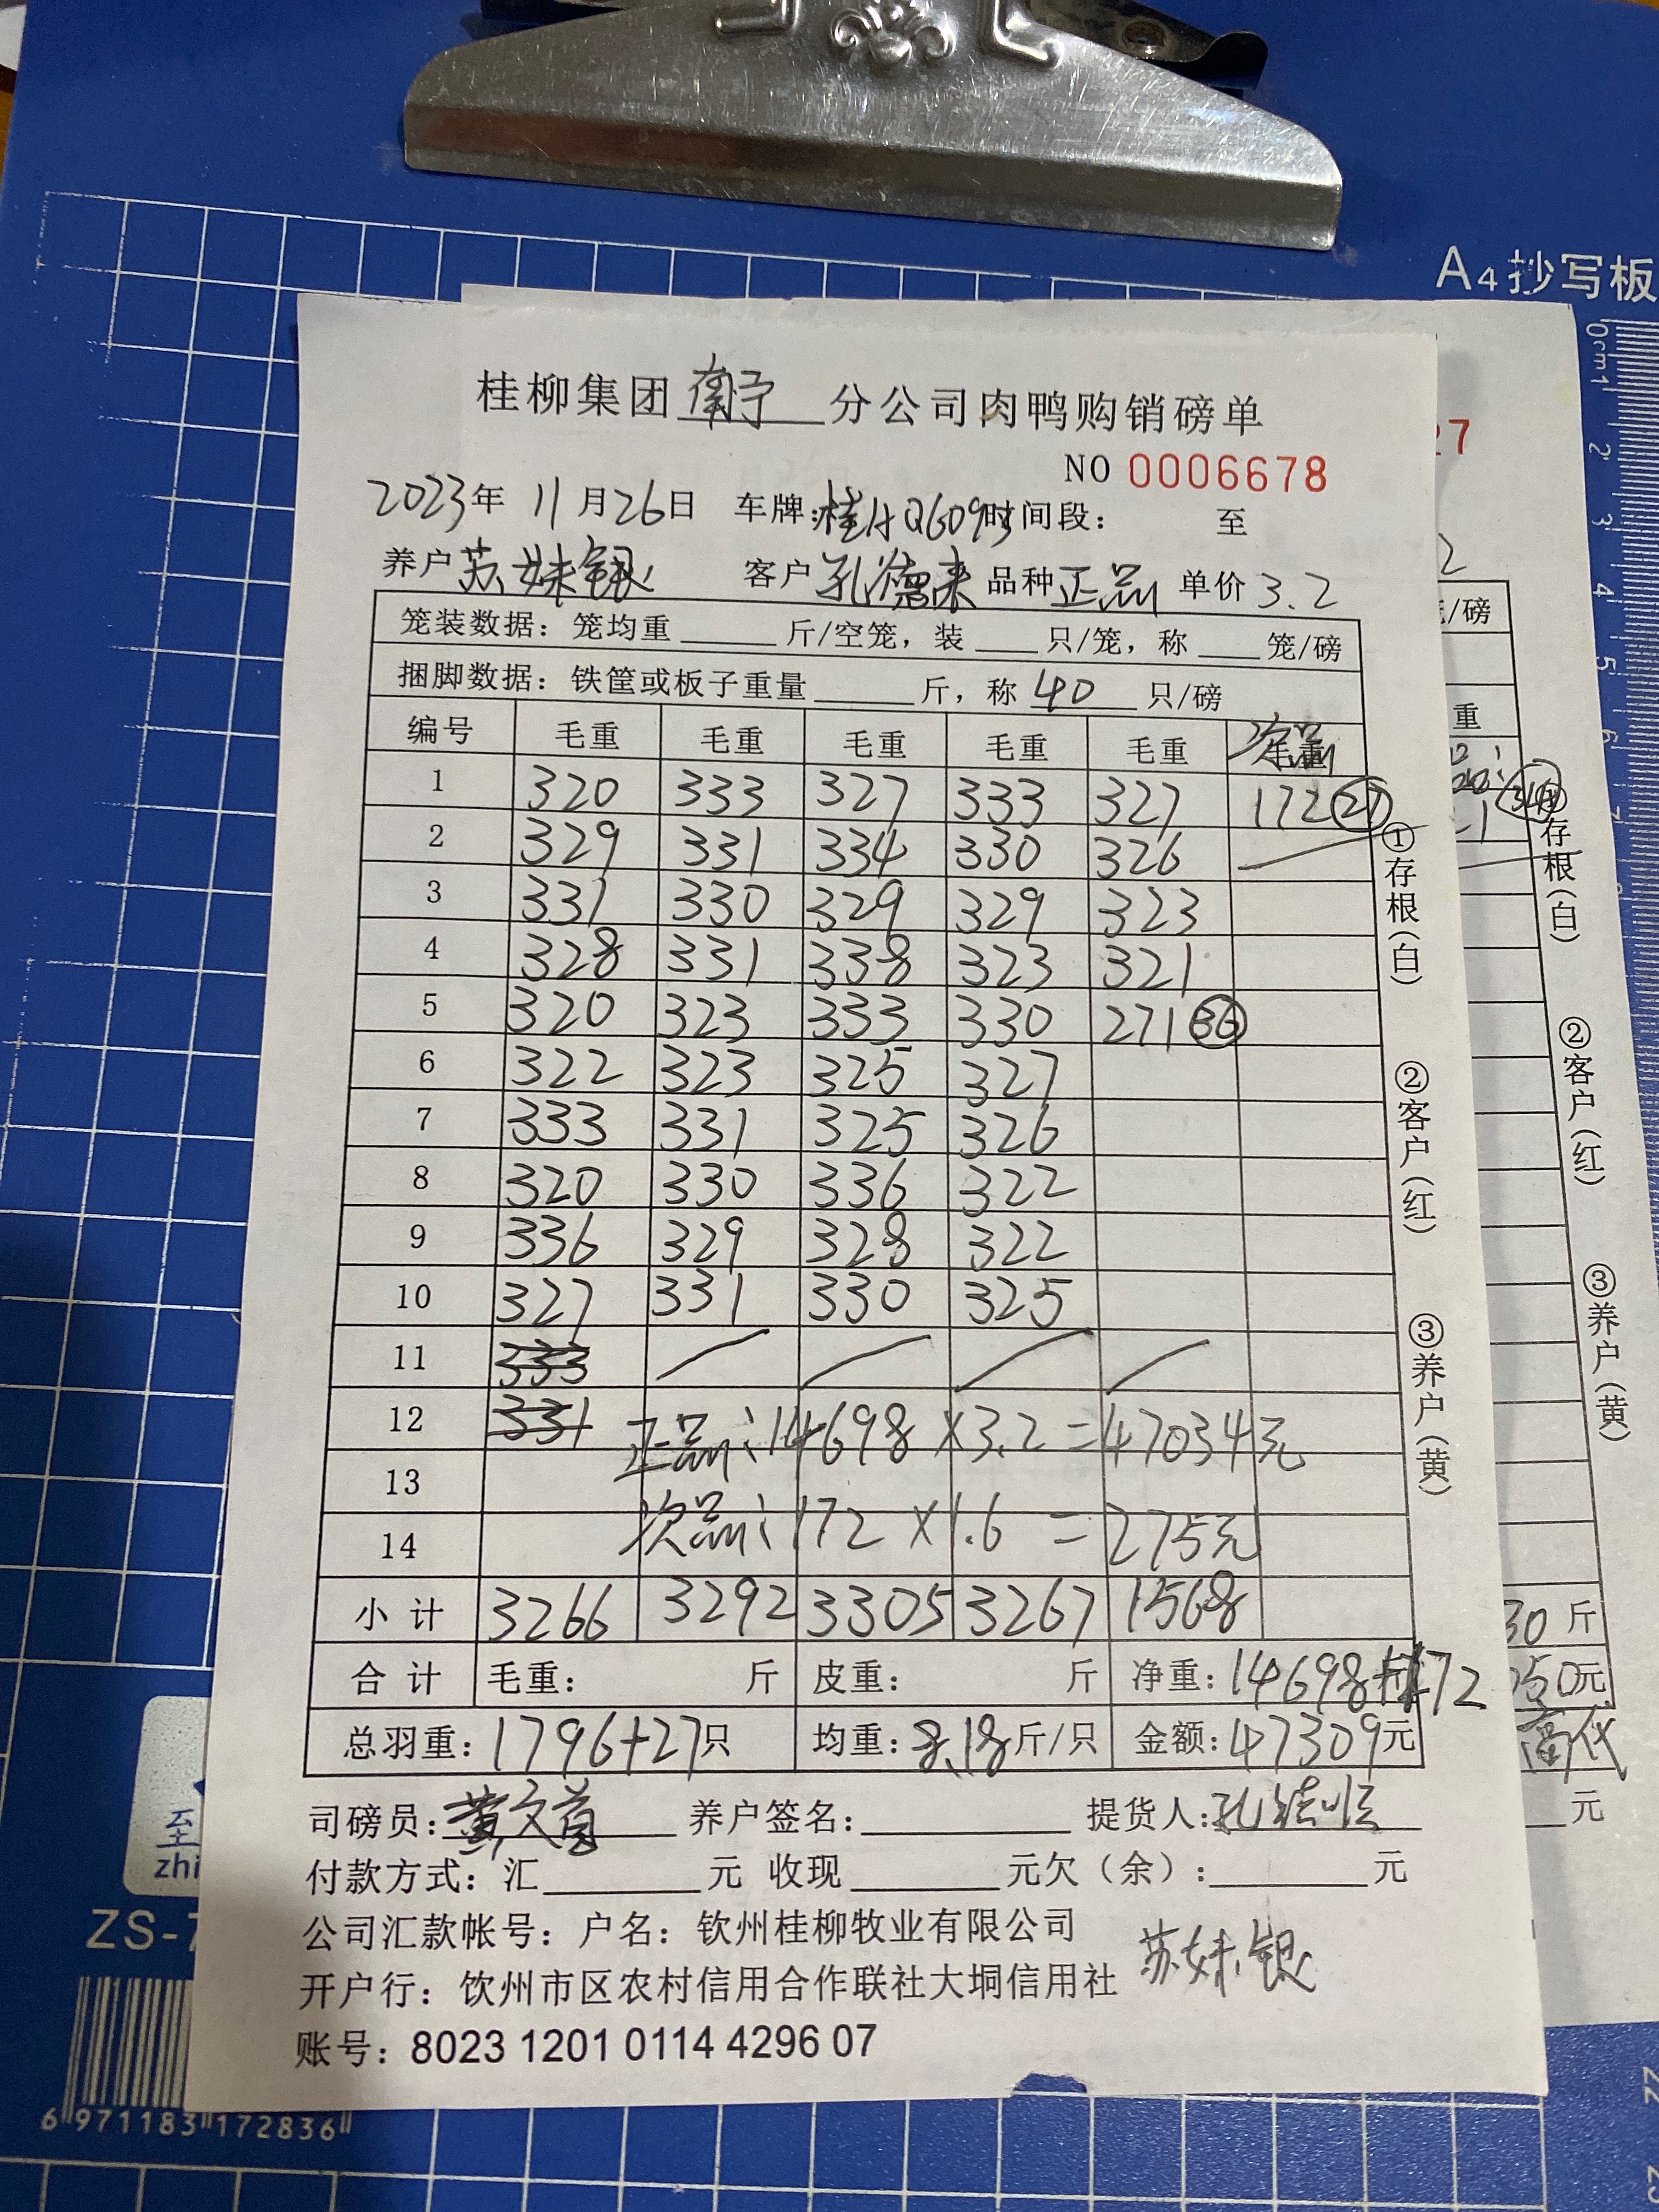 A4抄写板
0cm1
2
3
4
5
6
7
桂柳集团 南宁 分公司肉鸭购销磅单
NO 0006678
2023年 11月26日 车牌:桂A Q6093 时间段: 至
养户 苏妹银 客户 孔德来 品种 正品 单价 3.2
笼装数据: 笼均重 斤/空笼, 装 只/笼, 称 笼/磅
捆脚数据: 铁筐或板子重量 斤, 称 40 只/磅
编号 毛重 毛重 毛重 毛重 毛重 毛重 次品
1 320 333 327 333 327 172 (27)
2 329 331 334 330 326
3 331 330 329 329 323
4 328 331 338 323 321
5 320 323 333 330 271 (36)
6 322 323 325 327
7 333 331 325 326
8 320 330 336 322
9 336 329 328 322
10 327 331 330 325
11 333
12 331 正品: 14698 × 3.2 = 47034元
13
14 次品: 172 × 1.6 = 275元
小计 3266 3292 3305 3267 1568
合计 毛重: 斤 皮重: 斤 净重: 14698+172
总羽重: 1796+27只 均重: 8.18斤/只 金额: 47309元
司磅员: 黄文首 养户签名: 提货人:
付款方式: 汇 元 收现 元欠(余): 元
公司汇款帐号: 户名: 钦州桂柳牧业有限公司
苏妹银
开户行: 钦州市区农村信用合作联社大垌信用社
账号: 8023 1201 0114 4296 07
①存根(白) ②客户(红) ③养户(黄)
27
2
/磅
重
存根(白) ②客户(红) ③养户(黄)
30 斤
元
元
至
zhi
ZS-7
6 971183 172836
22